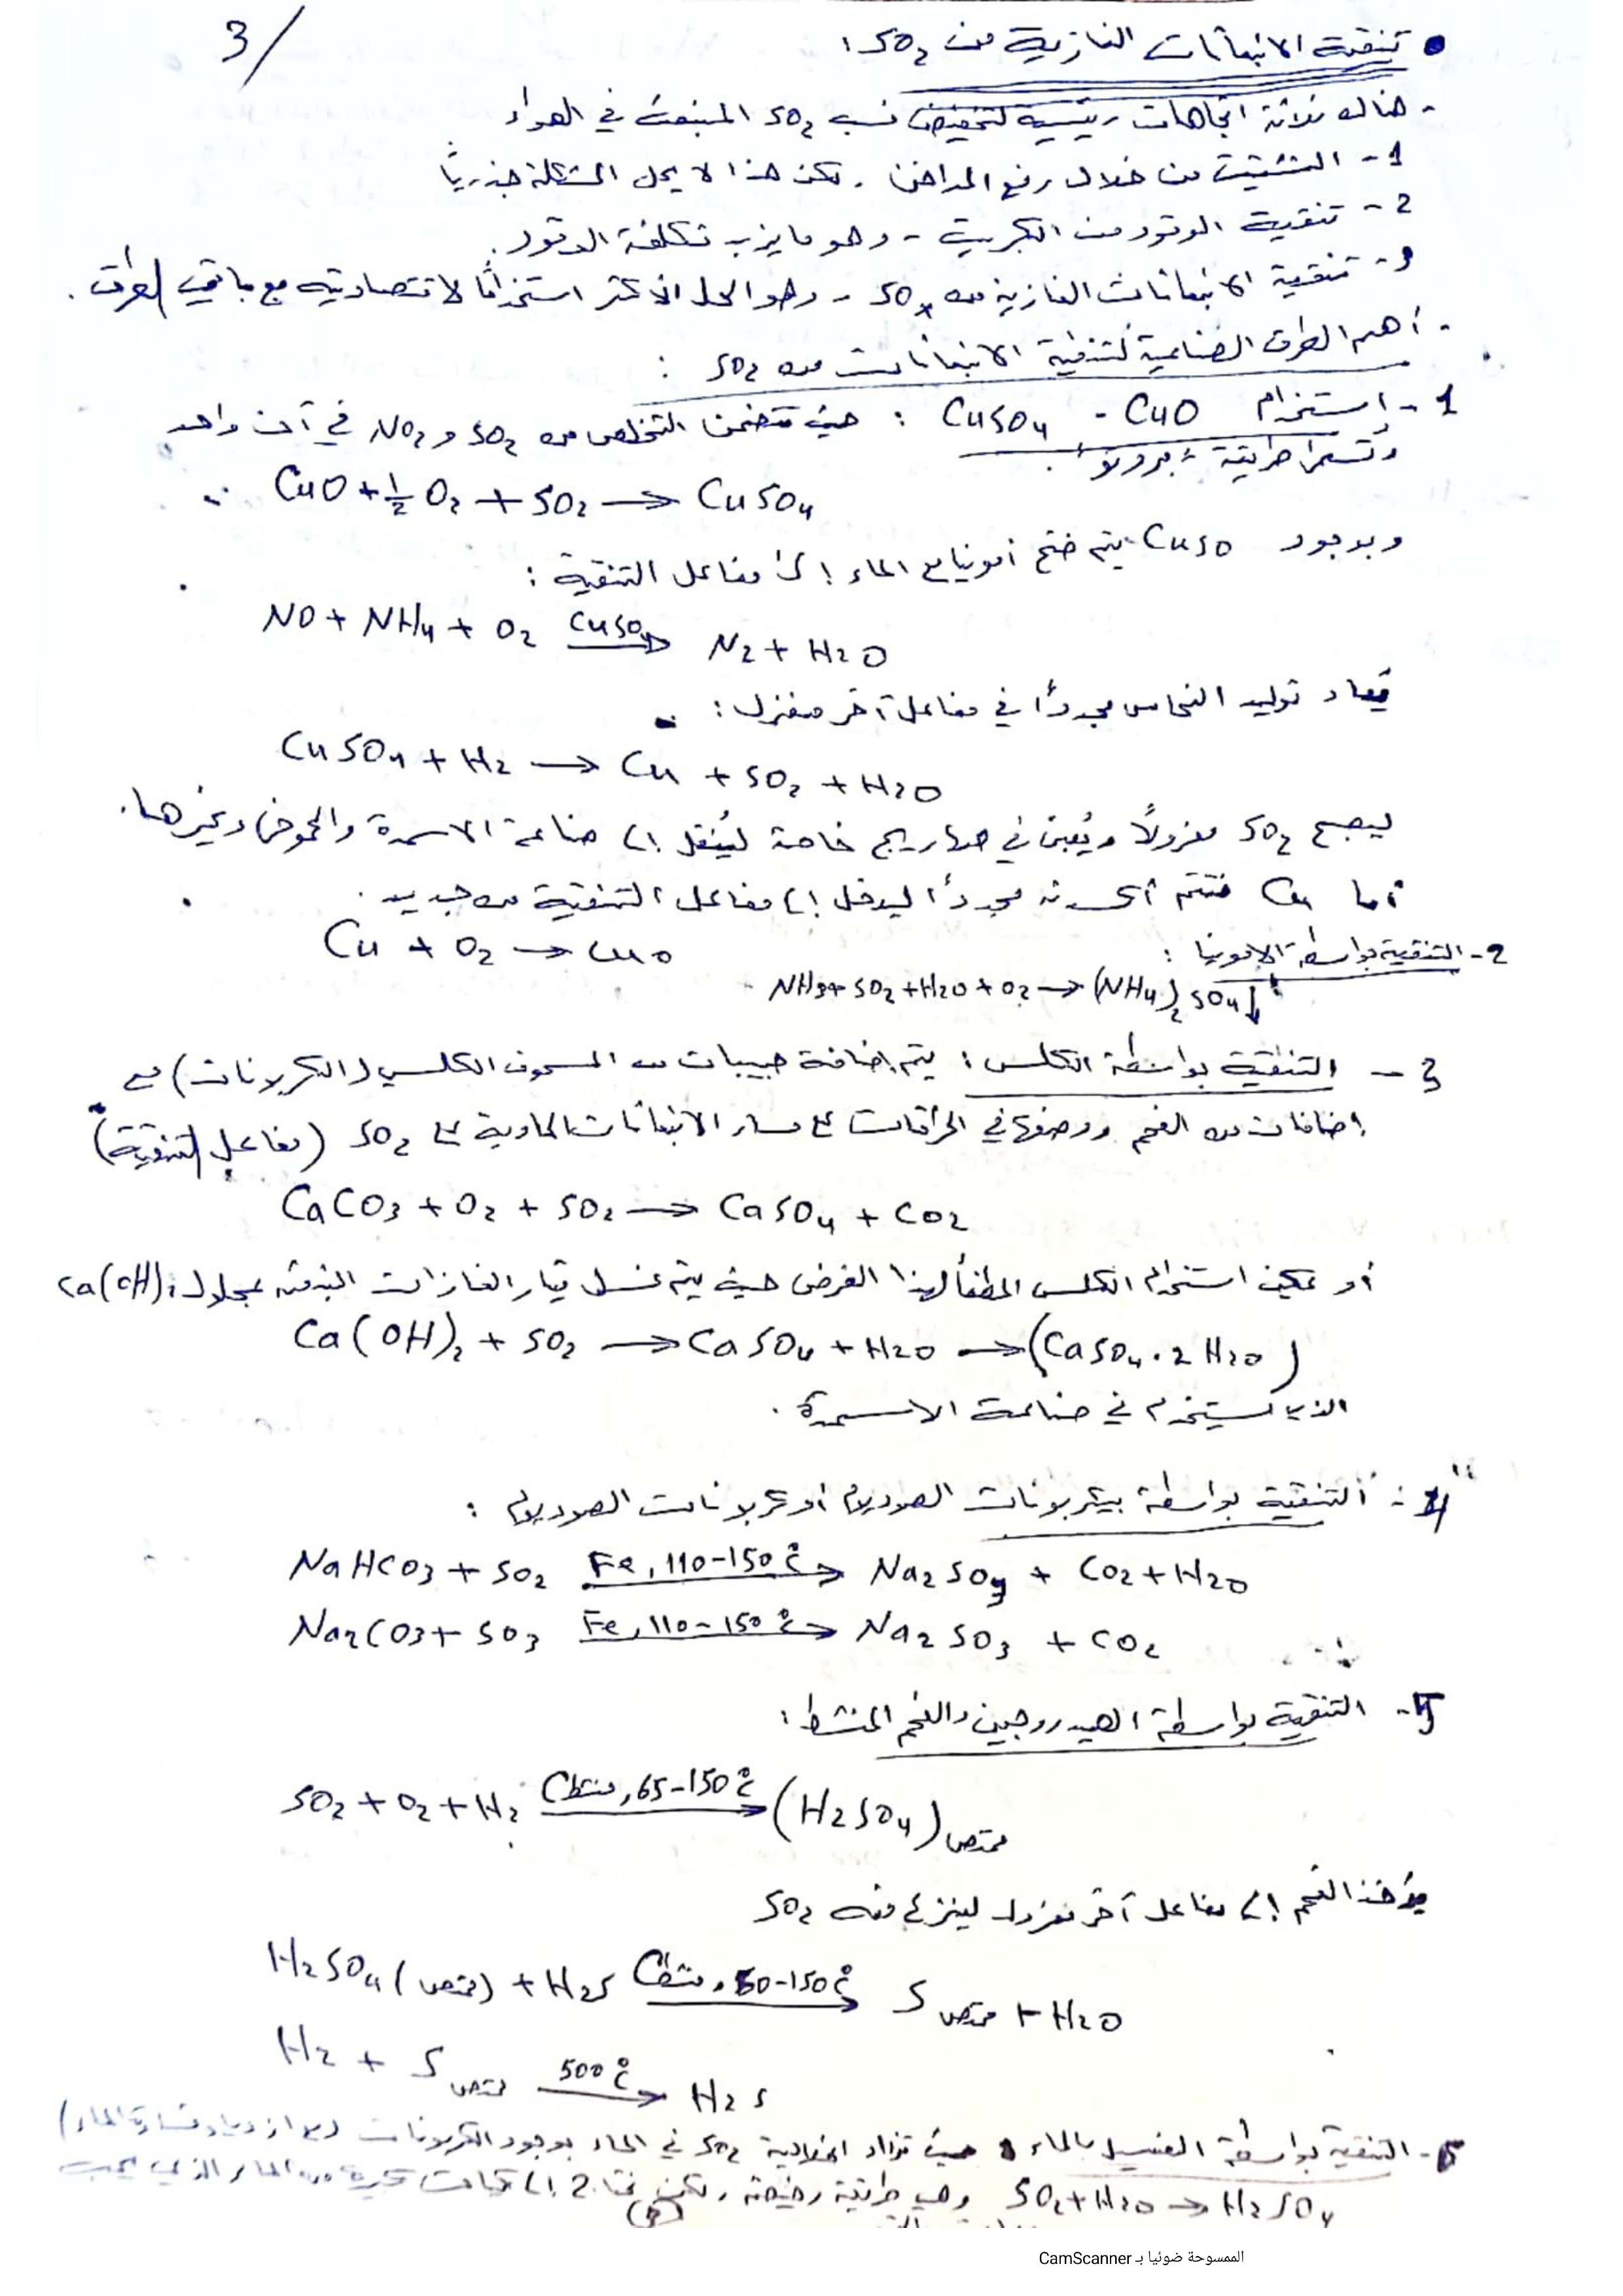 3/
• تنقية الانبعاثات الغازية من SO₂:
- هناك ثلاثة اتجاهات رئيسية لتخفيض نسب SO₂ المنبعث في الهواء
1- التشتيت من خلال رفع المداخن. لكن هذا لا يحل المشكلة جذرياً
2- تنقية الوقود من الكبريت - وهو ما يزيد تكلفة الوقود.
3- تنقية الانبعاثات الغازية من SOx - وهو الحل الأكثر استخداماً لاقتصاديته مع باقي الطرق.
- أهم الطرق الصناعية لتنقية الانبعاثات من SO₂ :
1- استخدام CuO - CuSO₄ : حيث تتضمن التخلص من SO₂ و NO₂ في آن واحد
وتسمى طريقة
CuO + ½ O₂ + SO₂ → CuSO₄
وبوجود CuSO يتم ضخ أمونيا مع الماء إلى مفاعل التنقية :
NO + NH₄ + O₂ —CuSO₄→ N₂ + H₂O
يعاد توليد النحاس مجدداً في مفاعل آخر منعزل :
CuSO₄ + H₂ → Cu + SO₂ + H₂O
ليصبح SO₂ معزولاً ويُعبئ في صهاريج خاصة ليُنقل إلى صناعة الاسمدة والحموض وغيرها.
أما Cu فتتم أكسدته مجدداً ليدخل إلى مفاعل التنقية من جديد.
Cu + O₂ → CuO
2- التنقية بواسطة الامونيا :
NH₃ + SO₂ + H₂O + O₂ → (NH₄)₂SO₄↓
3- التنقية بواسطة الكلس : يتم إضافة حبيبات من المسحوق الكلسي (الكربونات) مع
إضافات من الفحم ووضعها في الحراقات على مسار الانبعاثات الحاوية على SO₂ (مفاعل التنقية)
CaCO₃ + O₂ + SO₂ → CaSO₄ + CO₂
أو يمكن استخدام الكلس المطفأ لهذا الغرض حيث يتم غسل تيار الغازات المنبعثة بمحلول Ca(OH)₂
Ca(OH)₂ + SO₂ → CaSO₄ + H₂O → (CaSO₄.2H₂O)
الذي يستخدم في صناعة الاسمدة.
4- التنقية بواسطة بيكربونات الصوديوم أو كربونات الصوديوم :
NaHCO₃ + SO₂ —Fe, 110-150 C°→ Na₂SO₃ + CO₂ + H₂O
Na₂CO₃ + SO₃ —Fe, 110-150 C°→ Na₂SO₃ + CO₂
5- التنقية بواسطة الهيدروجين والفحم المنشط :
SO₂ + O₂ + H₂ —C منشط, 65-150 C°→ (H₂SO₄) ممتص
يؤخذ الفحم إلى مفاعل آخر معزول لينزع منه SO₂
H₂SO₄ (ممتص) + H₂S —C منشط, 50-150 C°→ S ممتص + H₂O
H₂ + S ممتص —500 C°→ H₂S
6- التنقية بواسطة الغسيل بالماء حيث تزداد انحلالية SO₂ في الماء بوجود الكربونات (مع ازدياد قساوة الماء)
SO₂ + H₂O → H₂SO₄ وهي طريقة رخيصة, لكن نحتاج إلى كميات كبيرة من الماء الذي يجب
الممسوحة ضوئيا بـ CamScanner